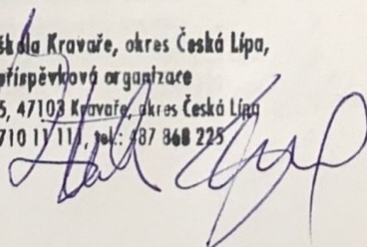 škola Kravaře, okres Česká Lípa,
příspěvková organizace
5, 47103 Kravaře, okres Česká Lípa
710 11 111, tel.: 487 868 225